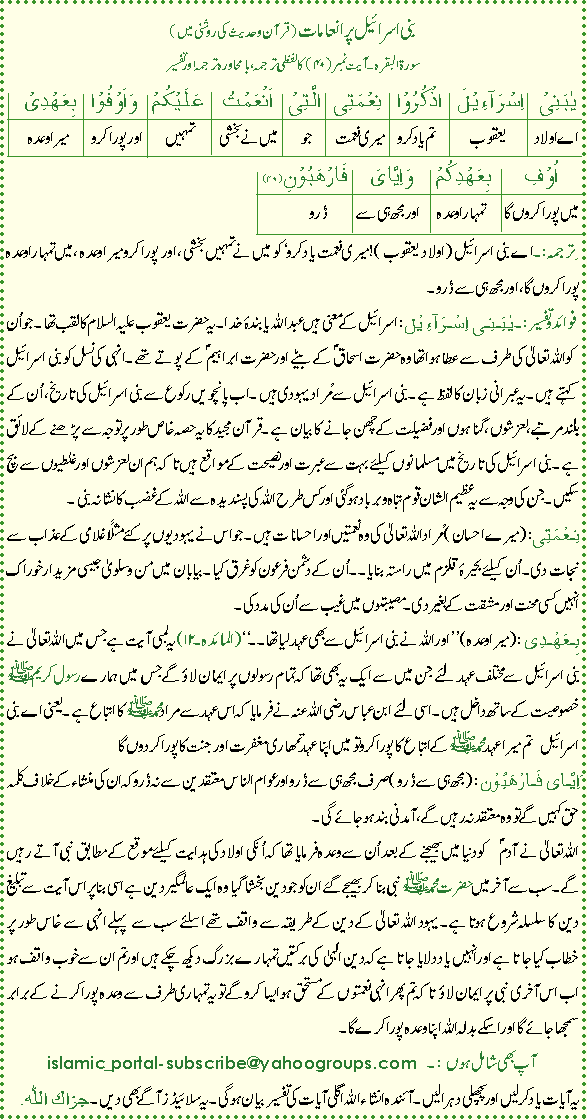 بنی اسرائیل پر انعامات (قرآن وحدیث کی روشنی میں)
سورۃ البقرہ۔ آیت نمبر (۴۰) کا لفظی ترجمہ، بامحاورہ ترجمہ اور تفسیر
يٰبَنِىْٓ اِسْرَآءِيْلَ اذْكُرُوْا نِعْمَتِىَ الَّتِىْٓ اَنْعَمْتُ عَلَيْكُمْ وَاَوْفُوْا بِعَهْدِىْٓ
اے اولاد یعقوب تم یاد کرو میری نعمت جو میں نے بخشی تمہیں اور پورا کرو میرا وعدہ
اُوْفِ بِعَهْدِكُمْ وَاِيَّاىَ فَارْهَبُوْنِ (۴۰)
میں پورا کروں گا تمہارا وعدہ اور مجھ ہی سے ڈرو
ترجمہ:۔ اے بنی اسرائیل (اولاد یعقوب)! میری نعمت یاد کرو' کو میں نے تمہیں بخشی، اور پورا کرو میرا وعدہ، میں تمہارا وعدہ
پورا کروں گا، اور مجھ ہی سے ڈرو۔
فوائد و تفسیر:۔ يٰبَنِىْٓ اِسْرَآءِيْلَ: اسرائیل کے معنی ہیں عبداللہ یا بندۂ خدا۔ یہ حضرت یعقوب علیہ السلام کا لقب تھا۔ جو اُن
کو اللہ تعالٰی کی طرف سے عطا ہوا تھا وہ حضرت اسحاقؑ کے بیٹے اور حضرت ابراہیمؑ کے پوتے تھے۔ انہی کی نسل کو بنی اسرائیل
کہتے ہیں۔ یہ عبرانی زبان کا لفظ ہے۔ بنی اسرائیل سے مُراد یہودی ہیں۔ اب پانچویں رکوع سے بنی اسرائیل کی تاریخ، اُن کے
بلند مرتبے، لغزشوں، گناہوں اور فضیلت کے چھن جانے کا بیان ہے۔ قرآن مجید کا یہ حصہ خاص طور پر توجہ سے پڑھنے کے لائق
ہے۔ بنی اسرائیل کی تاریخ میں مسلمانوں کیلئے بہت سے عبرت اور نصیحت کے مواقع ہیں تاکہ ہم ان لغزشوں اور غلطیوں سے بچ
سکیں۔ جن کی وجہ سے یہ عظیم الشان قوم تباہ و برباد ہوگئی اور کس طرح اللہ کی پسندیدہ سے اللہ کے غضب کا نشانہ بنی۔
نِعْمَتِىَ: (میرے احسان) مُراد اللہ تعالٰی کی وہ نعمتیں اور احسانات ہیں۔ جو اس نے یہودیوں پر کئے مثلاً غلامی کے عذاب سے
نجات دی۔ اُن کیلئے بحیرۂ قلزم میں راستہ بنایا۔۔ اُن کے دشمن فرعون کو غرق کیا۔ بیابان میں من و سلویٰ جیسی مزیدار خوراک
انہیں کسی محنت اور مشقت کے بغیر دی۔ مصیبتوں میں غیب سے اُن کی مدد کی۔
بِعَهْدِىْ: (میرا وعدہ) ''اور اللہ نے بنی اسرائیل سے بھی عہد لیا تھا۔۔'' (المائدہ۔۱۲) یہ لمبی آیت ہے جس میں اللہ تعالٰی نے
بنی اسرائیل سے مختلف عہد لئے جن میں سے ایک یہ بھی تھا کہ تمام رسولوں پر ایمان لاؤ گے جس میں ہمارے رسول کریم ﷺ
خصوصیت کے ساتھ داخل ہیں۔ اسی لئے ابن عباس رضی اللہ عنہ نے فرمایا کہ اس عہد سے مراد محمد ﷺ کا اتباع ہے۔ یعنی اے بنی
اسرائیل تم میرا عہد محمد ﷺ کے اتباع کا پورا کرو تو میں اپنا عہد تمھاری مغفرت اور جنت کا پورا کردوں گا
اِيَّاىَ فَارْهَبُوْنِ: (مجھ ہی سے ڈرو) صرف مجھ ہی سے ڈرو اور عوام الناس معتقدین سے نہ ڈرو کہ ان کی منشاء کے خلاف کلمہ
حق کہیں گے تو وہ معتقد نہ رہیں گے، آمدنی بند ہو جائے گی۔
اللہ تعالٰی نے آدمؑ کو دنیا میں بھیجنے کے بعد اُن سے وعدہ فرمایا تھا کہ اُنکی اولاد کی ہدایت کیلئے موقع کے مطابق نبی آتے رہیں
گے۔ سب سے آخر میں حضرت محمد ﷺ نبی بنا کر بھیجے گئے ان کو جو دین بخشا گیا وہ ایک عالمگیر دین ہے اسی بنا پر اس آیت سے تبلیغ
دین کا سلسلہ شروع ہوتا ہے۔ یہود اللہ تعالٰی کے دین کے طریقہ سے واقف تھے اسلئے سب سے پہلے انہی سے خاص طور پر
خطاب کیا جاتا ہے اور انہیں یاد دلایا جاتا ہے کہ دین الہٰی کی برکتیں تمہارے بزرگ دیکھ چکے ہیں اور تم ان سے خوب واقف ہو
اب اس آخری نبی پر ایمان لاؤ تاکہ تم پھر انہی نعمتوں کے مستحق ہو ایسا کرو گے تو یہ تمہاری طرف سے وعدہ پورا کرنے کے برابر
سمجھا جائے گا اور اسکے بدلہ اللہ اپنا وعدہ پورا کرے گا۔
آپ بھی شامل ہوں :۔ islamic_portal-subscribe@yahoogroups.com
یہ آیات یاد کرلیں اور پچھلی دہرالیں۔ آئندہ انشاء اللہ اگلی آیات کی تفسیر بیان ہوگی۔ یہ سلائیڈز آگے بھی دیں۔ جزاک اللہ